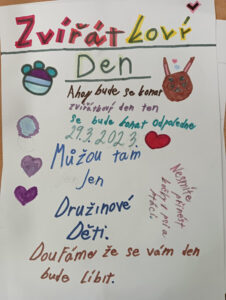 Zvířátkový
Den
Ahoj bude se konat
zvířátkový den ten
se bude konat odpoledne
29.3.2023.
Můžou tam
jen
Družinové
Děti.
Nesmíte
přinést
kočky psi a
Doufáme že se vám den
bude líbit.